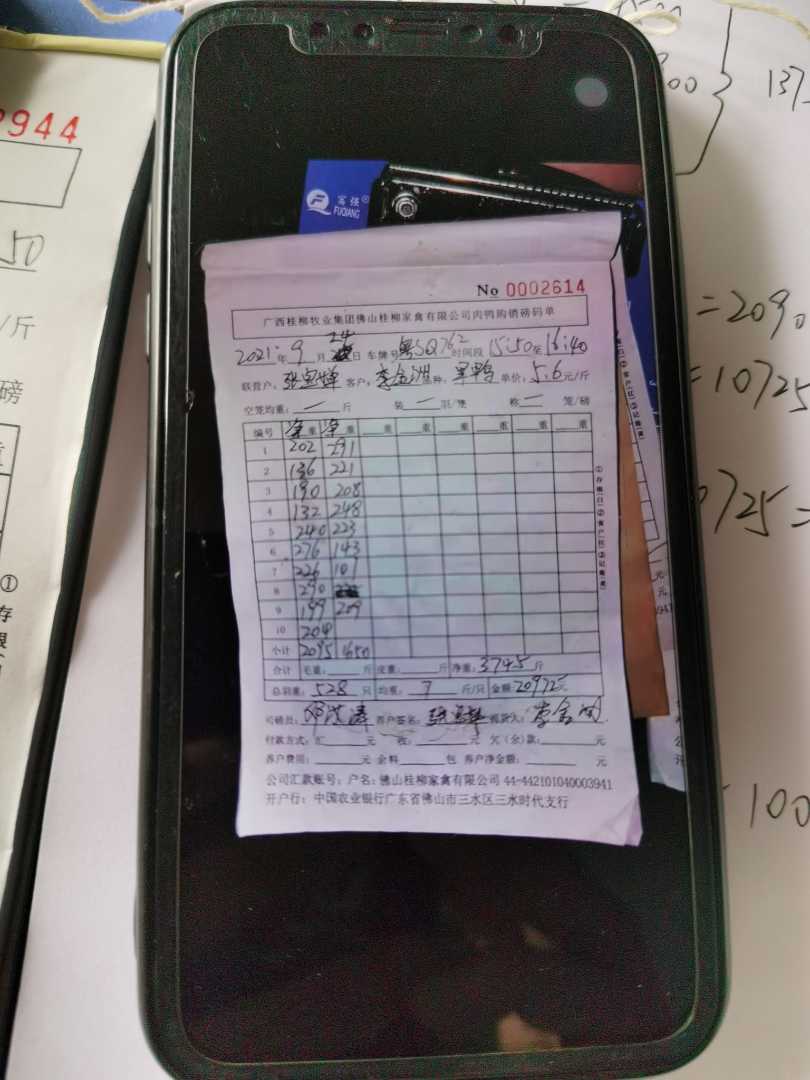 944
50
/斤
磅
重
①
存
根
1373
=2090
=10725
0725=
100
富强®
FUQIANG
No 0002614
广西桂柳牧业集团佛山桂柳家禽有限公司肉鸭购销磅码单
2021年9月24日 车牌号粤SQ762时间段15:50至16:40
联营户: 客户: 品种: 单价:5.6元/斤
空笼均重:一斤 装一羽/笼 称一笼/磅
编号 净重 净重 重 重 重 重 重 重
1 202 291
2 136 221
3 190 208
4 132 248
5 240 223
6 276 143
7 226 101
8 290
9 199 209
10 204
小计 2095 1650
合计 毛重: 斤 皮重: 斤 净重:3745斤
总羽重:528只 均重:7斤/只 金额:20972元
①存根(白)②客户(红)③记账(黄)
司磅员: 养户签名: 提货人:
付款方式:汇 元 收: 元 欠(余)款: 元
养户费用: 元 余料 包 养户净金额: 元
公司汇款账号:户名:佛山桂柳家禽有限公司 44-442101040003941
开户行:中国农业银行广东省佛山市三水区三水时代支行